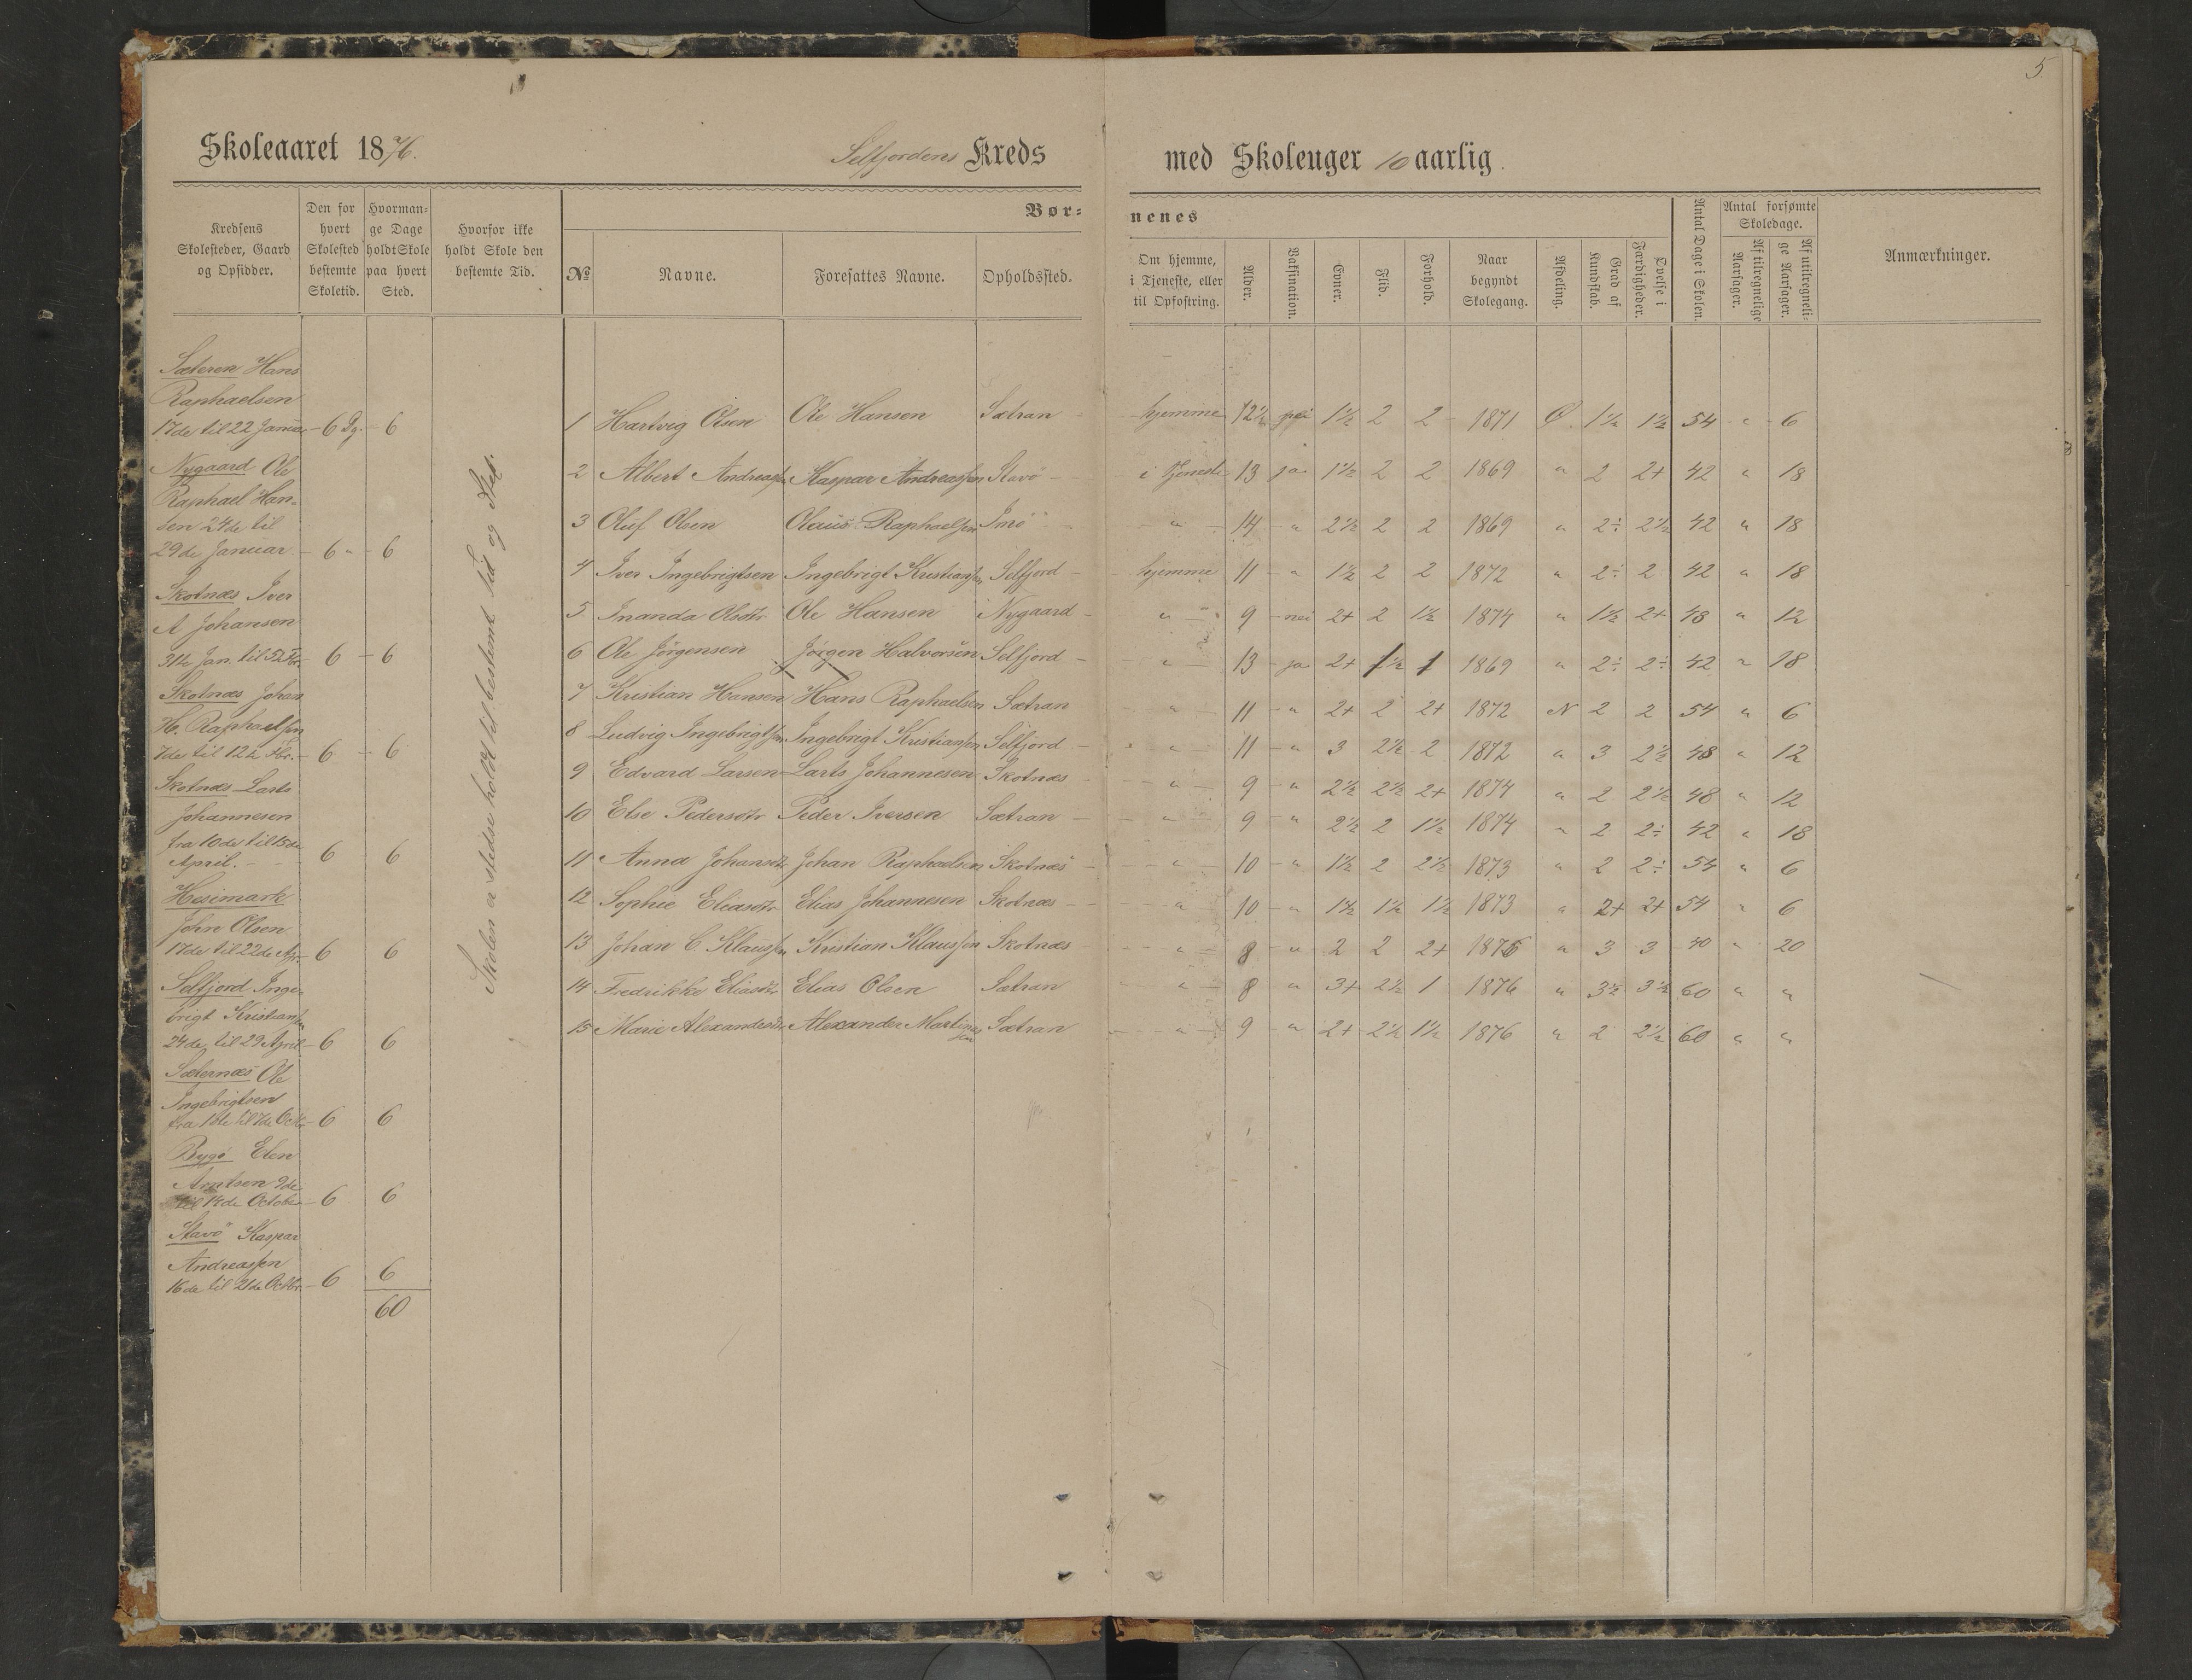 5
Skoleaaret 1876. Selfjordens Kreds med Skoleuger 10 aarlig.
Kredsens Skolesteder, Gaard og Opsidder.
Den for hvert Skolested bestemte Skoletid.
Hvormange Dage holdt Skole paa hvert Sted.
Hvorfor ikke holdt Skole den bestemte Tid.
Børnenes
№
Navne.
Foresattes Navne.
Opholdssted.
Om hjemme, i Tjeneste, eller til Opfostring.
Alder.
Vaksination.
Evner.
Flid.
Forhold.
Naar begyndt Skolegang.
Afdeling.
Grad af Kundskab.
Øvelse i Færdigheder.
Antal Dage i Skolen.
Antal forsømte Skoledage.
Af tilregnelige Aarsager.
Af utilregnelige Aarsager.
Anmærkninger.
Sæteren Hans
Raphaelsen
17de til 22 Januar 6 Dg. 6
Nygaard Ole
Raphael Han-
sen 24de til
29de Januar 6 " 6
Skotnæs Iver
A Johansen
31te Jan. til 5te Fbr. 6 6
Skotnæs Johan
H. Raphaelsen
7de til 12te Fbr. 6 6
Skotnæs Larts
Johannesen
fra 10de til 15de
April. 6 6
Hesimark
John Olsen
17de til 22de Apr. 6 6
Selfjord Inge-
brigt Kristiansen
24de til 29 April 6 6
Sæternæs Ole
Ingebrigtsen
fra 1ste til 7de Octb. 6 6
Bygø Eten
Arntsen 9de
til 14de October 6 6
Stavø Kaspar
Andreassen
16de til 21de Octbr. 6 6
60
Skolen er stedse holdt til bestemt Tid og Sted.
1 Hartvig Olsen Ole Hansen Sætran hjemme 12½ nei 1½ 2 2 1871 Ø 1½ 1½ 54 " 6
2 Albert Andreassen Kaspar Andreassen Stavø i Tjeneste 13 ja 1½ 2 2 1869 " 2 2+ 42 " 18
3 Oluf Olsen Olaus Raphaelsen Imø " 14 " 2½ 2 2 1869 " 2÷ 2½ 42 " 18
4 Iver Ingebrigtsen Ingebrigt Kristiansen Selfjord hjemme 11 " 1½ 2 2 1872 " 2÷ 2 42 " 18
5 Inanda Olsdtr Ole Hansen Nygaard " 9 nei 2+ 2 1½ 1874 " 1½ 2+ 48 " 12
6 Ole Jörgensen Jörgen Halvorsen Selfjord " 13 ja 2+ 1½ 1 1869 " 2÷ 2÷ 42 " 18
7 Kristian Hansen Hans Raphaelsen Sætran " 11 " 2+ 2 2+ 1872 N 2 2 54 " 6
8 Ludvig Ingebrigtsen Ingebrigt Kristiansen Selfjord " 11 " 3 2½ 2 1872 " 3 2½ 48 " 12
9 Edvard Larsen Larts Johannesen Skotnæs " 9 " 2½ 2½ 2+ 1874 " 2 2½ 48 " 12
10 Else Pedersdtr Peder Iversen Sætran " 9 " 2½ 2 1½ 1874 " 2 2÷ 42 " 18
11 Anna Johansdtr Johan Raphaelsen Skotnæs " 10 " 1½ 2 2½ 1873 " 2 2÷ 54 " 6
12 Sophie Eliasdtr Elias Johannesen Skotnæs " 10 " 1½ 1½ 1½ 1873 " 2+ 2+ 54 " 6
13 Johan C Klaussen Kristian Klaussen Skotnæs " 8 " 2 2 2+ 1876 " 3 3 40 " 20
14 Fredrikke Eliasdtr Elias Olsen Sætran " 8 " 3+ 2½ 1 1876 " 3½ 3½ 60 " "
15 Marie Alexandersdtr Alexander Martinussen Sætran " 9 " 2+ 2½ 1½ 1876 " 2 2½ 60 " "